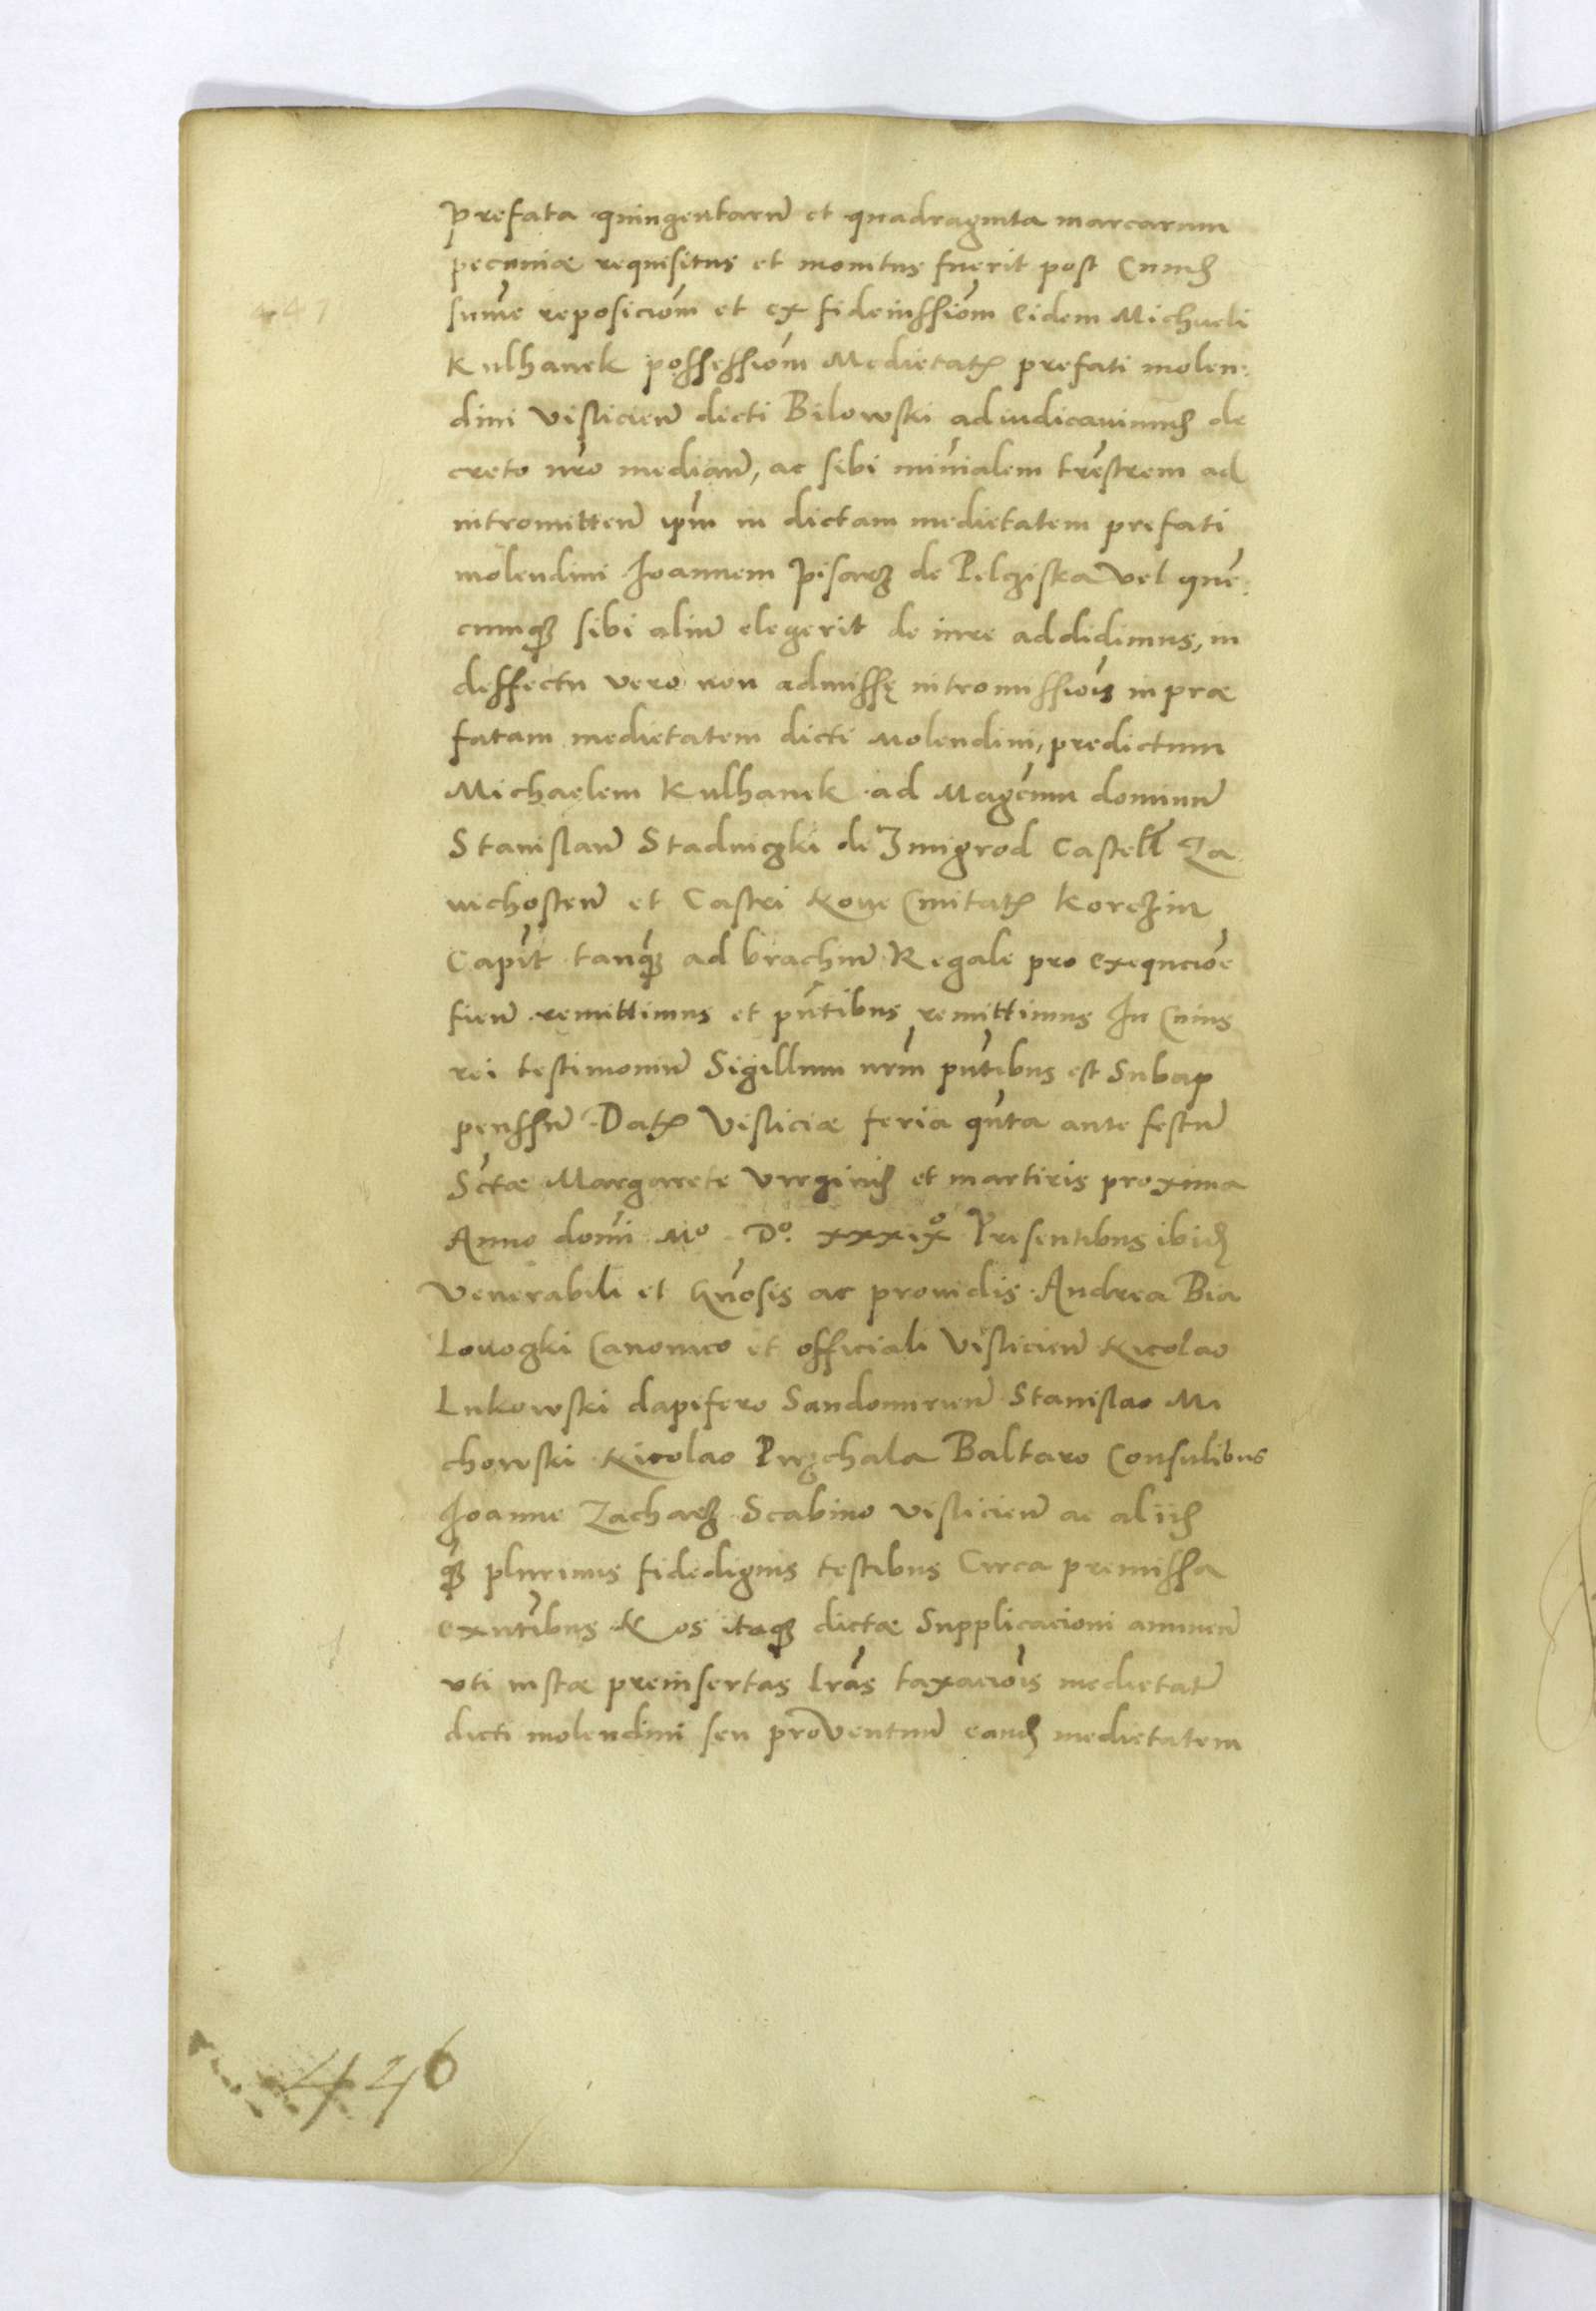 447
prefata quingentarũ et quadraginta marcarum
pecuniæ requisitus et monitus fuerit post Cuius
sume̅ reposiciom̅ et ex fideiussiom̅ eidem Michaeli
Kulhanek possessiom̅ Medietatꝭ prefati molen:
dini Vislicieñ dicti Bilowski adiudicauimus de
creto nr̅o medianñ, ac sibi mi̅nialem tr̅estrem ad
intromitteñ ip̅m in dictam medietatem prefati
molendini Joannem Pisarz de Pelcziska Vel que̅:
cumqꝫ sibi aliũ elegerit de iure addidimus, in
deffectu vero non admissę intromissiois̅ in præ
fatam medietatem dicti Molendini, predictum
Michaelem Kulhanek ad Mag̅cum dominũ
Stanislaũ Stadniczki de Zmigrod Castell̅ Za
uichosteñ et Castri Noue Ciuitatꝭ Korczin
Capit̅ tanqꝫ ad brachiũ Regale pro exequcioe̅
fieñ remittimus et pn̅tibus remittimus In Cuius
rei testimoniũ Sigillum nr̅m pn̅tibus est Subap
penssũ Datꝭ Visliciæ feria qu̅ta ante festũ
Sc̅tæ Margarete Virginis et martiris proxima
Anno dom̅i Mº. Dº. xxxixº Presentibus ibidꝫ
Venerabili et Gn̅osis ac prouidis Andrea Bia
Louoczki Canonico et officiali Vislicieñ Nicolao
Lukowski dapifero Sandomirieñ Stanislao Mi
chowski Nicolao Przchala Baltaro Consulibus
Joanne Zacharz Scabino Vislicieñ ac aliis
qꝫ plurimis fidedignis testibus Circa premissa
exn̅tibus Nos itaqꝫ dictæ Supplicacioni annueñ
vti iustæ preinsertas lr̅as taxaciois̅ medietatꝭ
dicti molendini seu prouentuũ eandꝫ medietatem
446